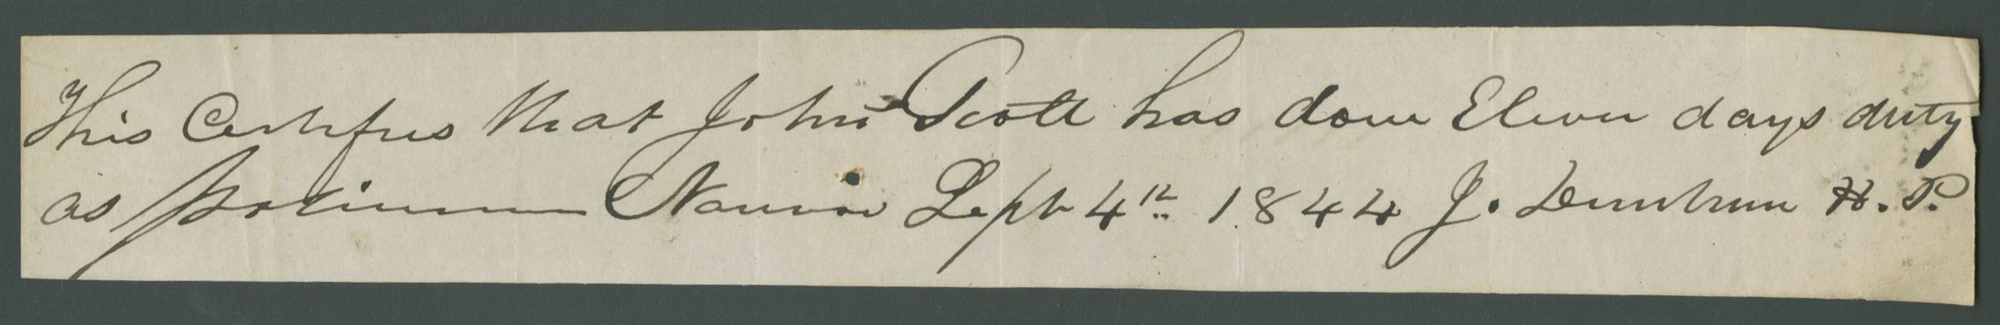 This Certifies that John Scott has done Eleven days duty
as policeman Nauvoo Sept 4th 1844 J. Dunham H. P.